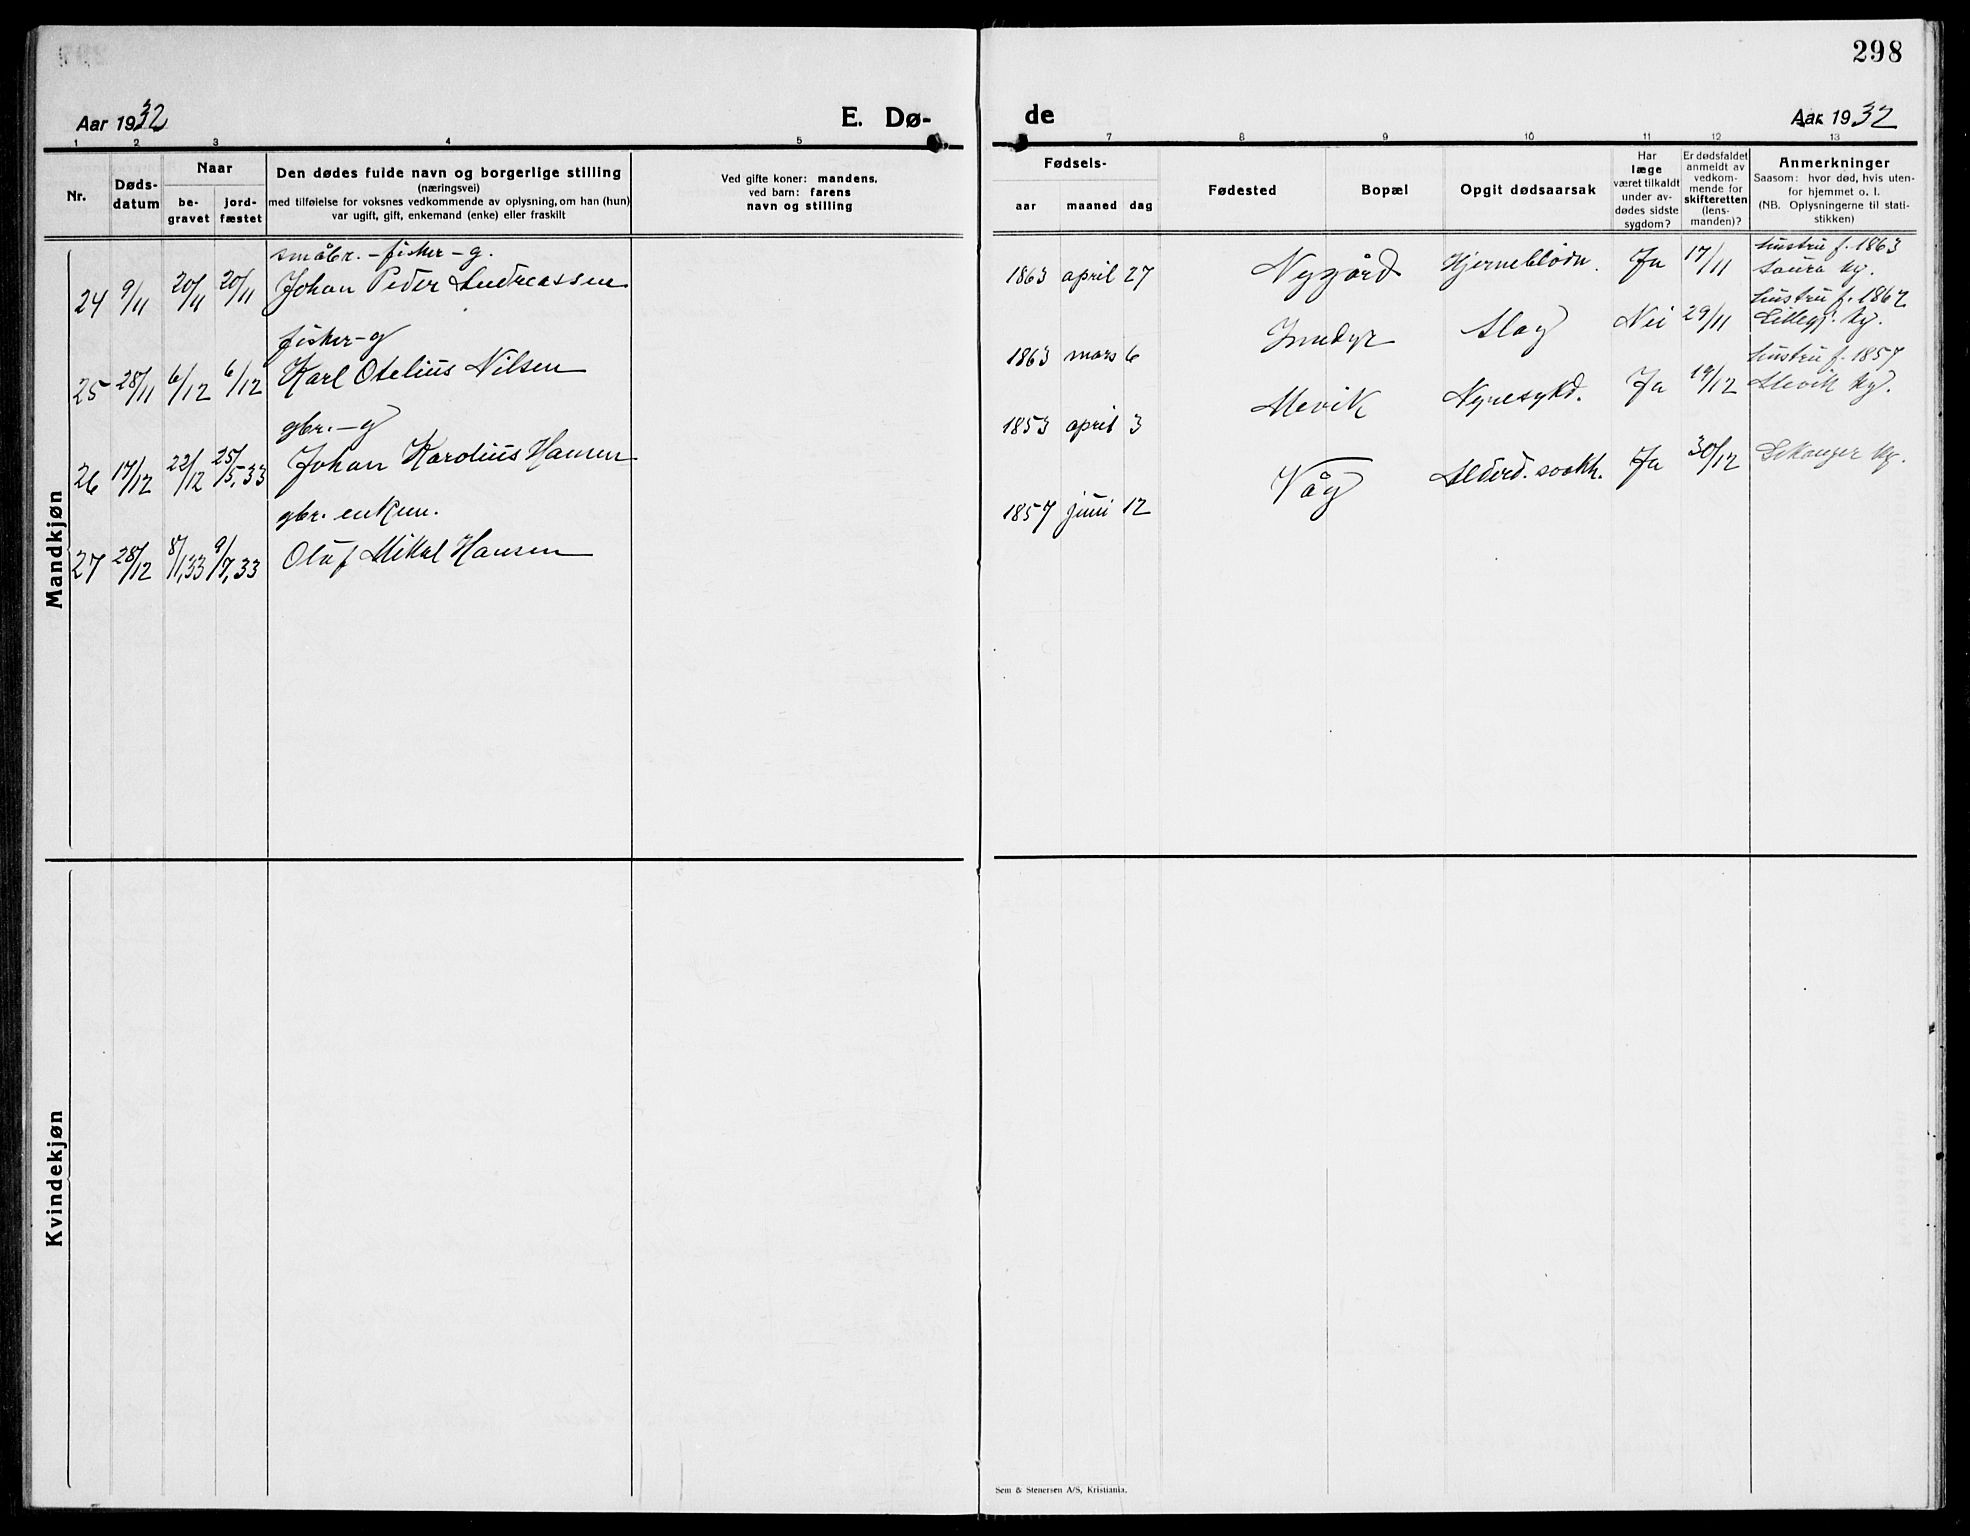 298
Aar 1932
E. Dø-
de
Aar 1932
1 2 3 4 5 7 8 9 10 11 12 13
Nr.
Døds-
datum
Naar
be-
gravet
jord-
fæstet
Den dødes fulde navn og borgerlige stilling
(næringsvei)
med tilføielse for voksnes vedkommende av oplysning, om han (hun)
var ugift, gift, enkemand (enke) eller fraskilt
Ved gifte koner: mandens,
ved barn: farens
navn og stilling
Fødsels-
aar maaned dag
Fødested
Bopæl
Opgit dødsaarsak
Har
læge
været tilkaldt
under av-
dødes sidste
sygdom?
Er dødsfaldet
anmeldt av
vedkom-
mende for
skifteretten
(lens-
manden)?
Anmerkninger
Saasom: hvor død, hvis uten-
for hjemmet o. l.
(NB. Oplysningerne til stati-
stikken)
Mandkjøn
småbr. - fisker - g.
24 9/11 20/11 20/11 Johan Peder Andreassen 1863 april 27 Nygård Hjerneblødn. Ja 17/11 hustru f. 1863
Saura kg.
fisker - g
25 28/11 6/12 6/12 Karl Otelius Nilsen 1863 mars 6 Inndyr Slag Nei 29/11 hustru f. 1862
kg.
gbr. - g
26 17/12 22/12 25/5.33 Johan Karolius Hansen 1853 april 3 Mevik Nyresykd. Ja 19/12 hustru f. 1857
Mevik kg.
gbr. enkem.
27 28/12 8/1,33 9/7,33 Olaf Mikal Hansen 1857 juni 12 Våg Alderd. svakh. Ja 30/12 kg.
Kvindekjøn
Sem & Stenersen A/S, Kristiania.